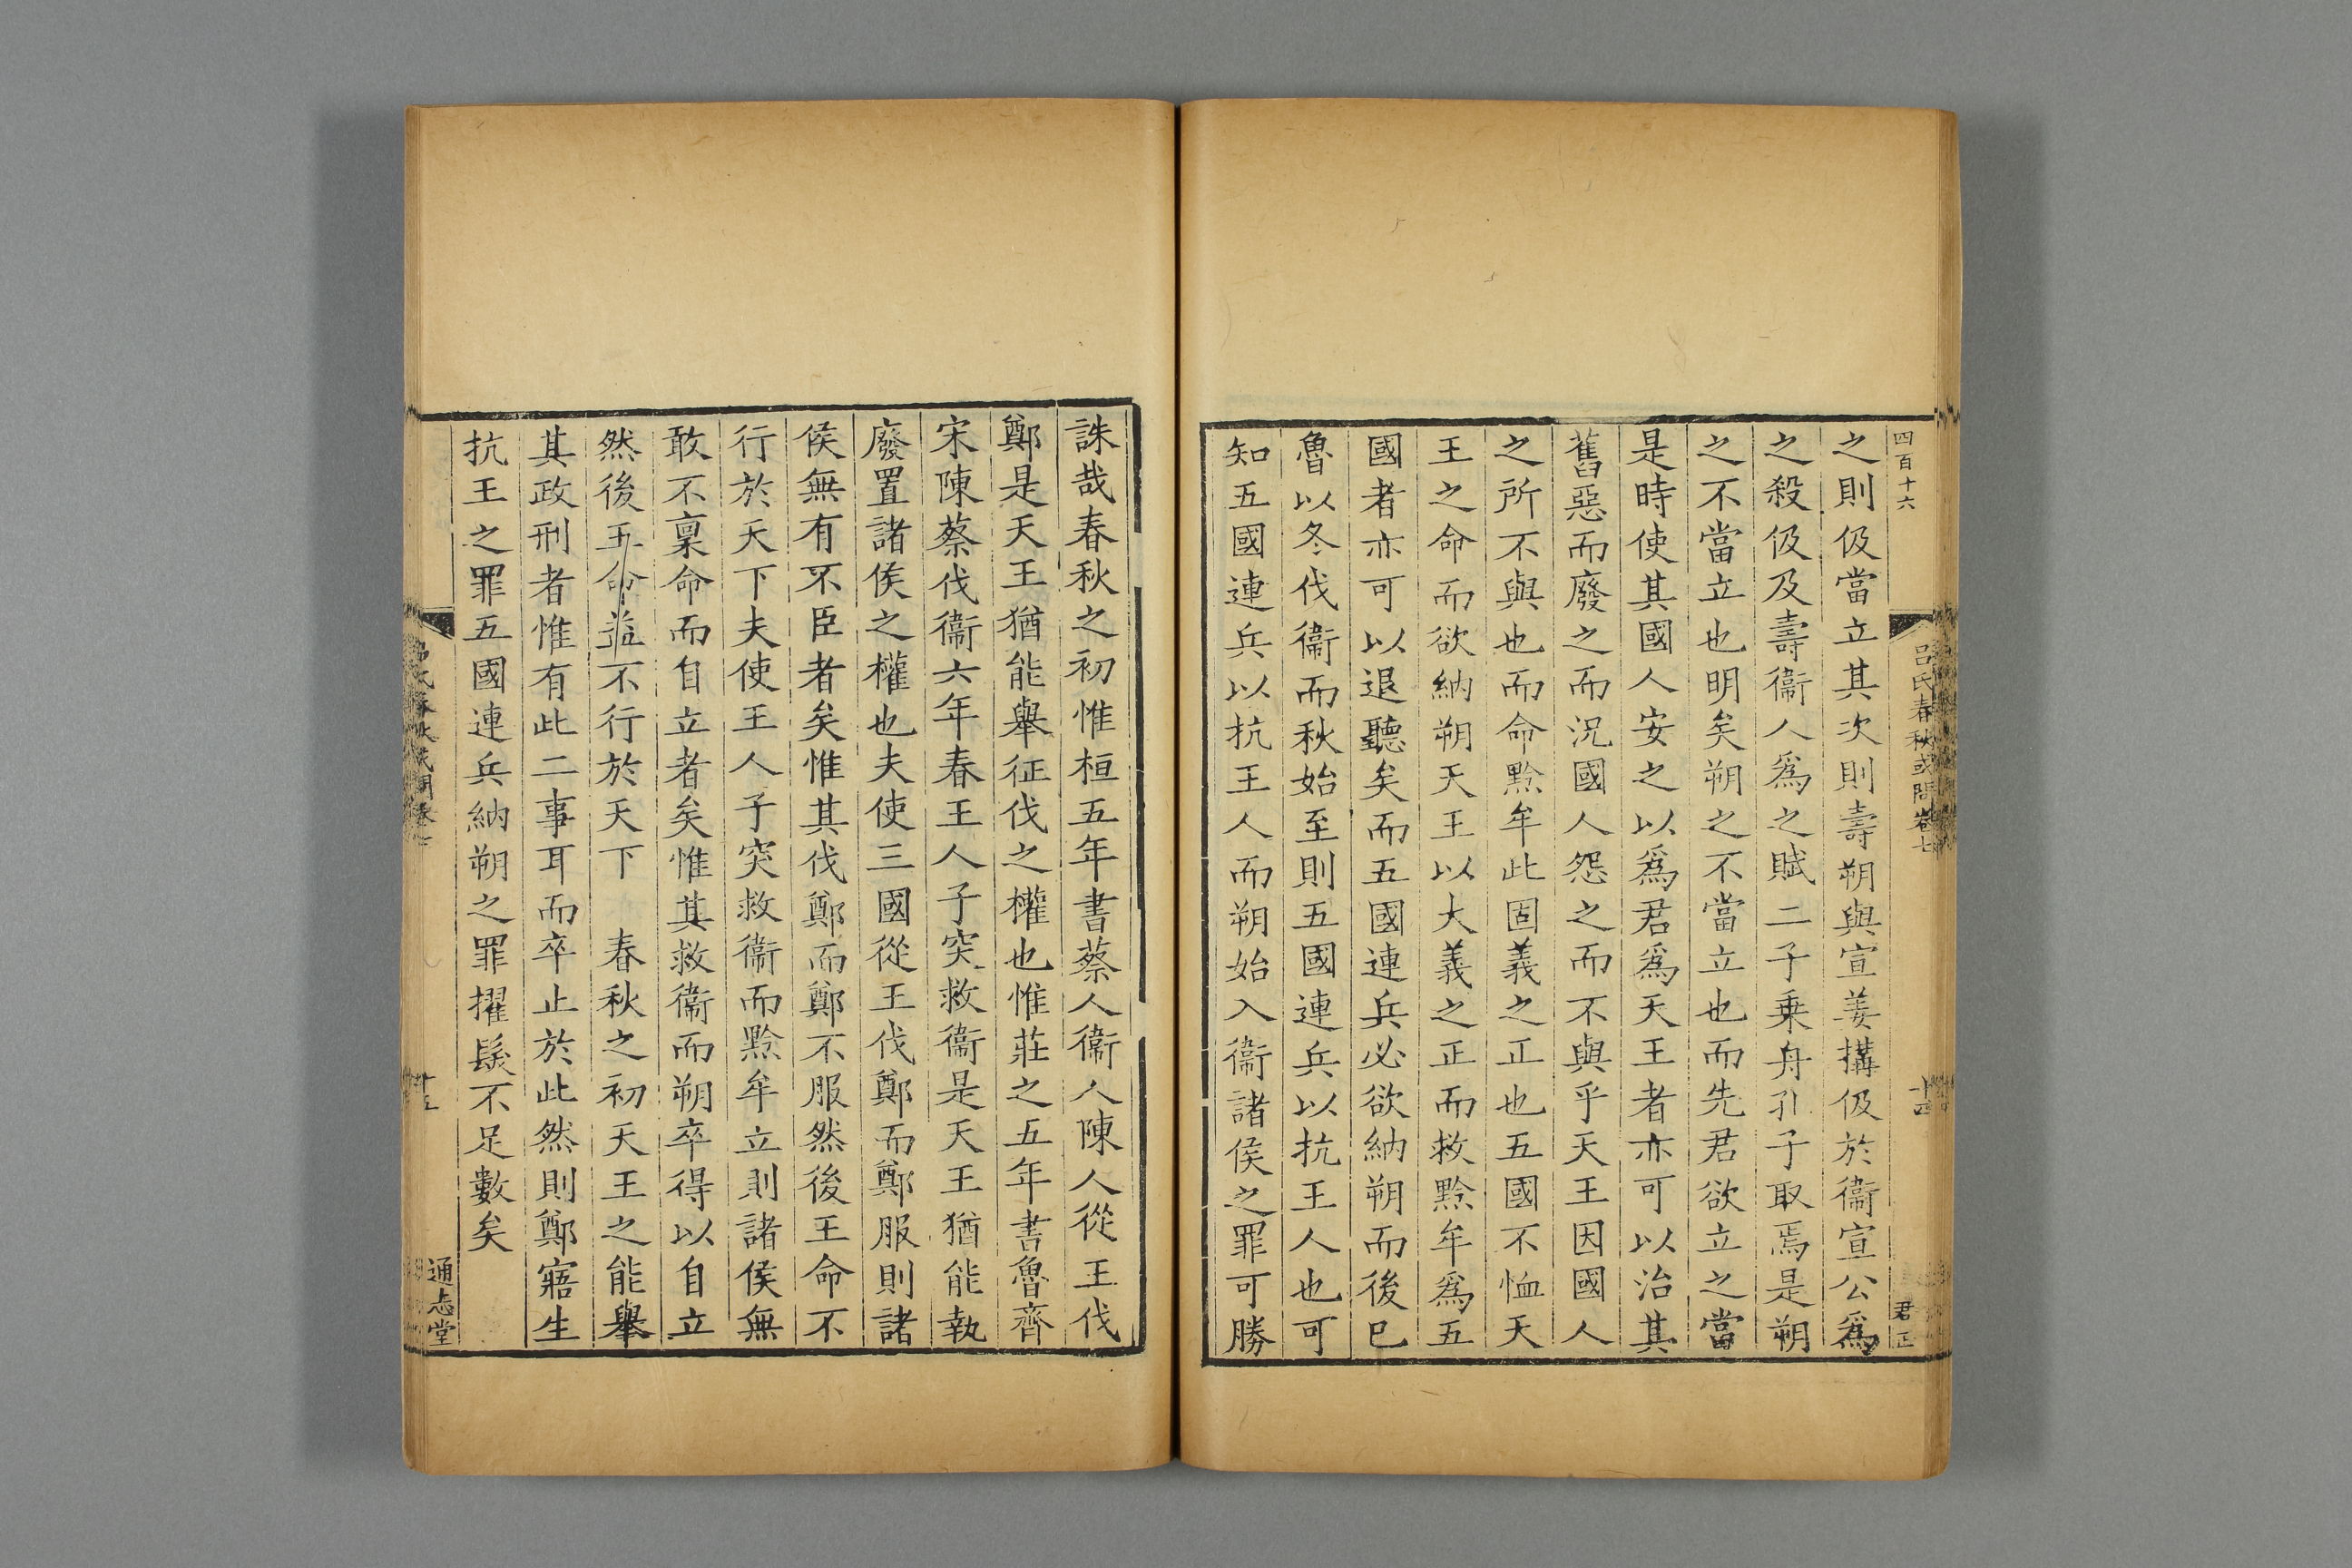 四百十六
呂氏春秋或問卷七
十四
君正
之則伋當立其次則壽朔與宣姜搆伋於衞宣公爲
之殺伋及壽衞人爲之賦二子乗舟孔子取焉是朔
之不當立也明矣朔之不當立也而先君欲立之當
是時使其國人安之以爲君爲天王者亦可以治其
舊惡而廢之而況國人怨之而不與乎天王因國人
之所不與也而命黔牟此固義之正也五國不恤天
王之命而欲納朔天王以大義之正而救黔牟爲五
國者亦可以退聽矣而五國連兵必欲納朔而後已
魯以冬伐衞而秋始至則五國連兵以抗王人也可
知五國連兵以抗王人而朔始入衞諸侯之罪可勝
誅哉春秋之初惟桓五年書蔡人衞人陳人從王伐
鄭是天王猶能舉征伐之權也惟莊之五年書魯齊
宋陳蔡伐衞六年春王人子突救衞是天王猶能執
廢置諸侯之權也夫使三國從王伐鄭而鄭服則諸
侯無有不臣者矣惟其伐鄭而鄭不服然後王命不
行於天下夫使王人子突救衞而黔牟立則諸侯無
敢不稟命而自立者矣惟其救衞而朔卒得以自立
然後王命益不行於天下 春秋之初天王之能舉
其政刑者惟有此二事耳而卒止於此然則鄭寤生
抗王之罪五國連兵納朔之罪擢髮不足數矣
十五
通志堂